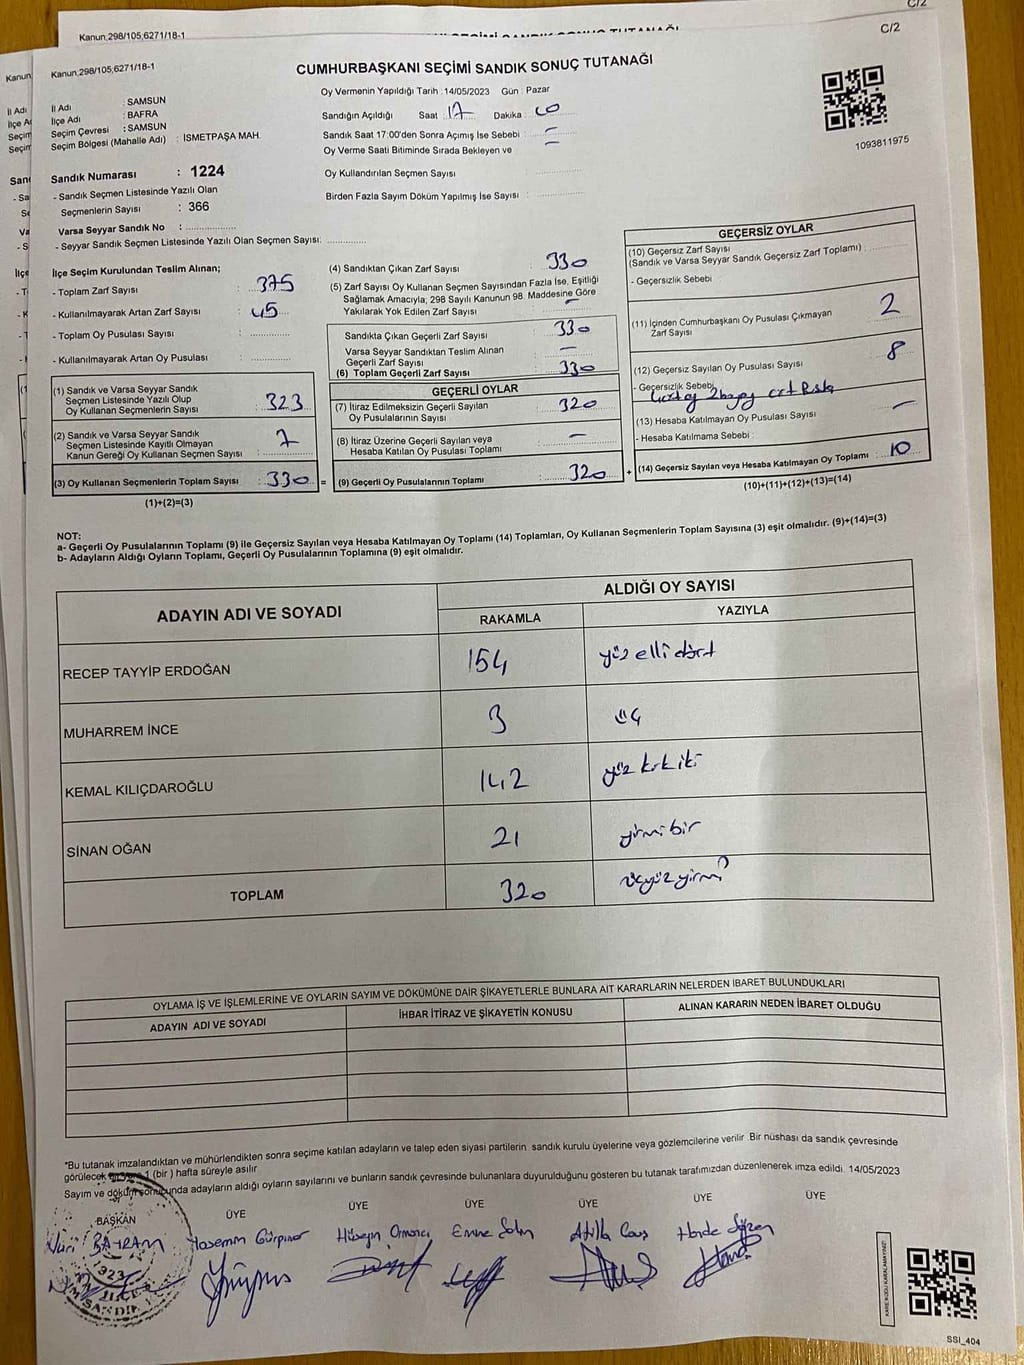 C/2
Kanun,298/105,6271/18-1
Kanun,298/105,6271/18-1
C/2
CUMHURBAŞKANI SEÇİMİ SANDIK SONUÇ TUTANAĞI
İl Adı : SAMSUN
İlçe Adı : BAFRA
Seçim Çevresi : SAMSUN
Seçim Bölgesi (Mahalle Adı) : İSMETPAŞA MAH.
Oy Vermenin Yapıldığı Tarih : 14/05/2023 Gün : Pazar
Sandığın Açıldığı Saat : 17 Dakika : 00
Sandık Saat 17:00'den Sonra Açımış İse Sebebi : –
Oy Verme Saati Bitiminde Sırada Bekleyen ve –
Oy Kullandırılan Seçmen Sayısı :
Birden Fazla Sayım Döküm Yapılmış İse Sayısı :
1093811975
Sandık Numarası : 1224
- Sandık Seçmen Listesinde Yazılı Olan
Seçmenlerin Sayısı : 366
Varsa Seyyar Sandık No :
- Seyyar Sandık Seçmen Listesinde Yazılı Olan Seçmen Sayısı:
İlçe Seçim Kurulundan Teslim Alınan;
- Toplam Zarf Sayısı : 375
- Kullanılmayarak Artan Zarf Sayısı : 45
- Toplam Oy Pusulası Sayısı :
- Kullanılmayarak Artan Oy Pusulası :
(1) Sandık ve Varsa Seyyar Sandık
Seçmen Listesinde Yazılı Olup
Oy Kullanan Seçmenlerin Sayısı : 323
(2) Sandık ve Varsa Seyyar Sandık
Seçmen Listesinde Kayıtlı Olmayan
Kanun Gereği Oy Kullanan Seçmen Sayısı : 7
(3) Oy Kullanan Seçmenlerin Toplam Sayısı : 330 =
(1)+(2)=(3)
(4) Sandıktan Çıkan Zarf Sayısı : 330
(5) Zarf Sayısı Oy Kullanan Seçmen Sayısından Fazla İse, Eşitliği
Sağlamak Amacıyla; 298 Sayılı Kanunun 98. Maddesine Göre
Yakılarak Yok Edilen Zarf Sayısı : –
Sandıkta Çıkan Geçerli Zarf Sayısı : 330
Varsa Seyyar Sandıktan Teslim Alınan
Geçerli Zarf Sayısı : –
(6) Toplam Geçerli Zarf Sayısı : 330
GEÇERLİ OYLAR
(7) İtiraz Edilmeksizin Geçerli Sayılan
Oy Pusulalarının Sayısı : 320
(8) İtiraz Üzerine Geçerli Sayılan veya
Hesaba Katılan Oy Pusulası Toplamı : –
(9) Geçerli Oy Pusulalarının Toplamı : 320 +
GEÇERSİZ OYLAR
(10) Geçersiz Zarf Sayısı
(Sandık ve Varsa Seyyar Sandık Geçersiz Zarf Toplamı) :
- Geçersizlik Sebebi :
(11) İçinden Cumhurbaşkanı Oy Pusulası Çıkmayan
Zarf Sayısı : 2
(12) Geçersiz Sayılan Oy Pusulası Sayısı : 8
- Geçersizlik Sebebi
(13) Hesaba Katılmayan Oy Pusulası Sayısı : –
- Hesaba Katılmama Sebebi :
(14) Geçersiz Sayılan veya Hesaba Katılmayan Oy Toplamı : 10
(10)+(11)+(12)+(13)=(14)
NOT:
a- Geçerli Oy Pusulalarının Toplamı (9) ile Geçersiz Sayılan veya Hesaba Katılmayan Oy Toplamı (14) Toplamları, Oy Kullanan Seçmenlerin Toplam Sayısına (3) eşit olmalıdır. (9)+(14)=(3)
b- Adayların Aldığı Oyların Toplamı, Geçerli Oy Pusulalarının Toplamına (9) eşit olmalıdır.
ADAYIN ADI VE SOYADI
ALDIĞI OY SAYISI
RAKAMLA YAZIYLA
RECEP TAYYİP ERDOĞAN 154 yüz elli dört
MUHARREM İNCE 3 üç
KEMAL KILIÇDAROĞLU 142 yüz kırk iki
SİNAN OĞAN 21 yirmi bir
TOPLAM 320 üçyüz yirmi
OYLAMA İŞ VE İŞLEMLERİNE VE OYLARIN SAYIM VE DÖKÜMÜNE DAİR ŞİKAYETLERLE BUNLARA AİT KARARLARIN NELERDEN İBARET BULUNDUKLARI
ADAYIN ADI VE SOYADI İHBAR İTİRAZ VE ŞİKAYETİN KONUSU ALINAN KARARIN NEDEN İBARET OLDUĞU
*Bu tutanak imzalandıktan ve mühürlendikten sonra seçime katılan adayların ve talep eden siyasi partilerin sandık kurulu üyelerine veya gözlemcilerine verilir. Bir nüshası da sandık çevresinde
görülecek 1 (bir) hafta süreyle asılır
Sayım ve döküm sonucunda adayların aldığı oyların sayılarını ve bunların sandık çevresinde bulunanlara duyurulduğunu gösteren bu tutanak tarafımızdan düzenlenerek imza edildi. 14/05/2023
BAŞKAN ÜYE ÜYE ÜYE ÜYE ÜYE ÜYE
Nuri BAYRAM Yasemin Gürpınar Hüseyin Ormancı Emine Şahin Atilla Hande
SSI_404